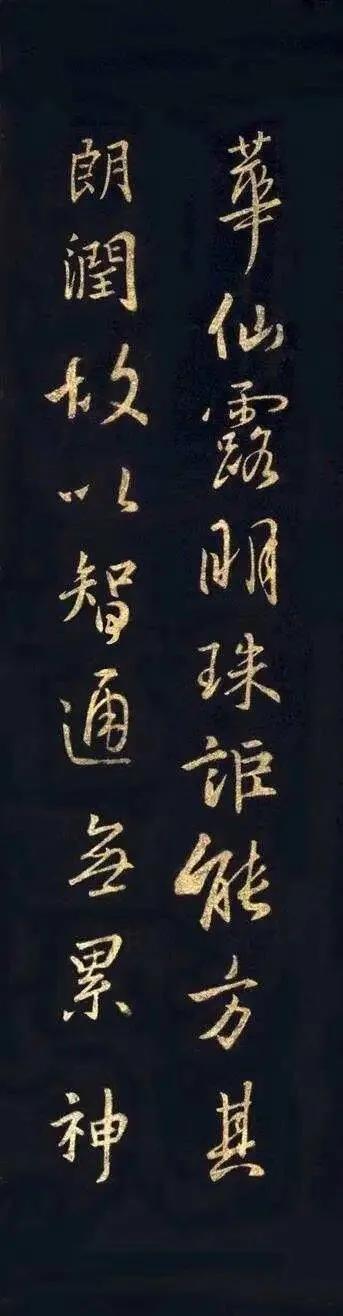 華仙露明珠詎能方其
朗潤故以智通無累神